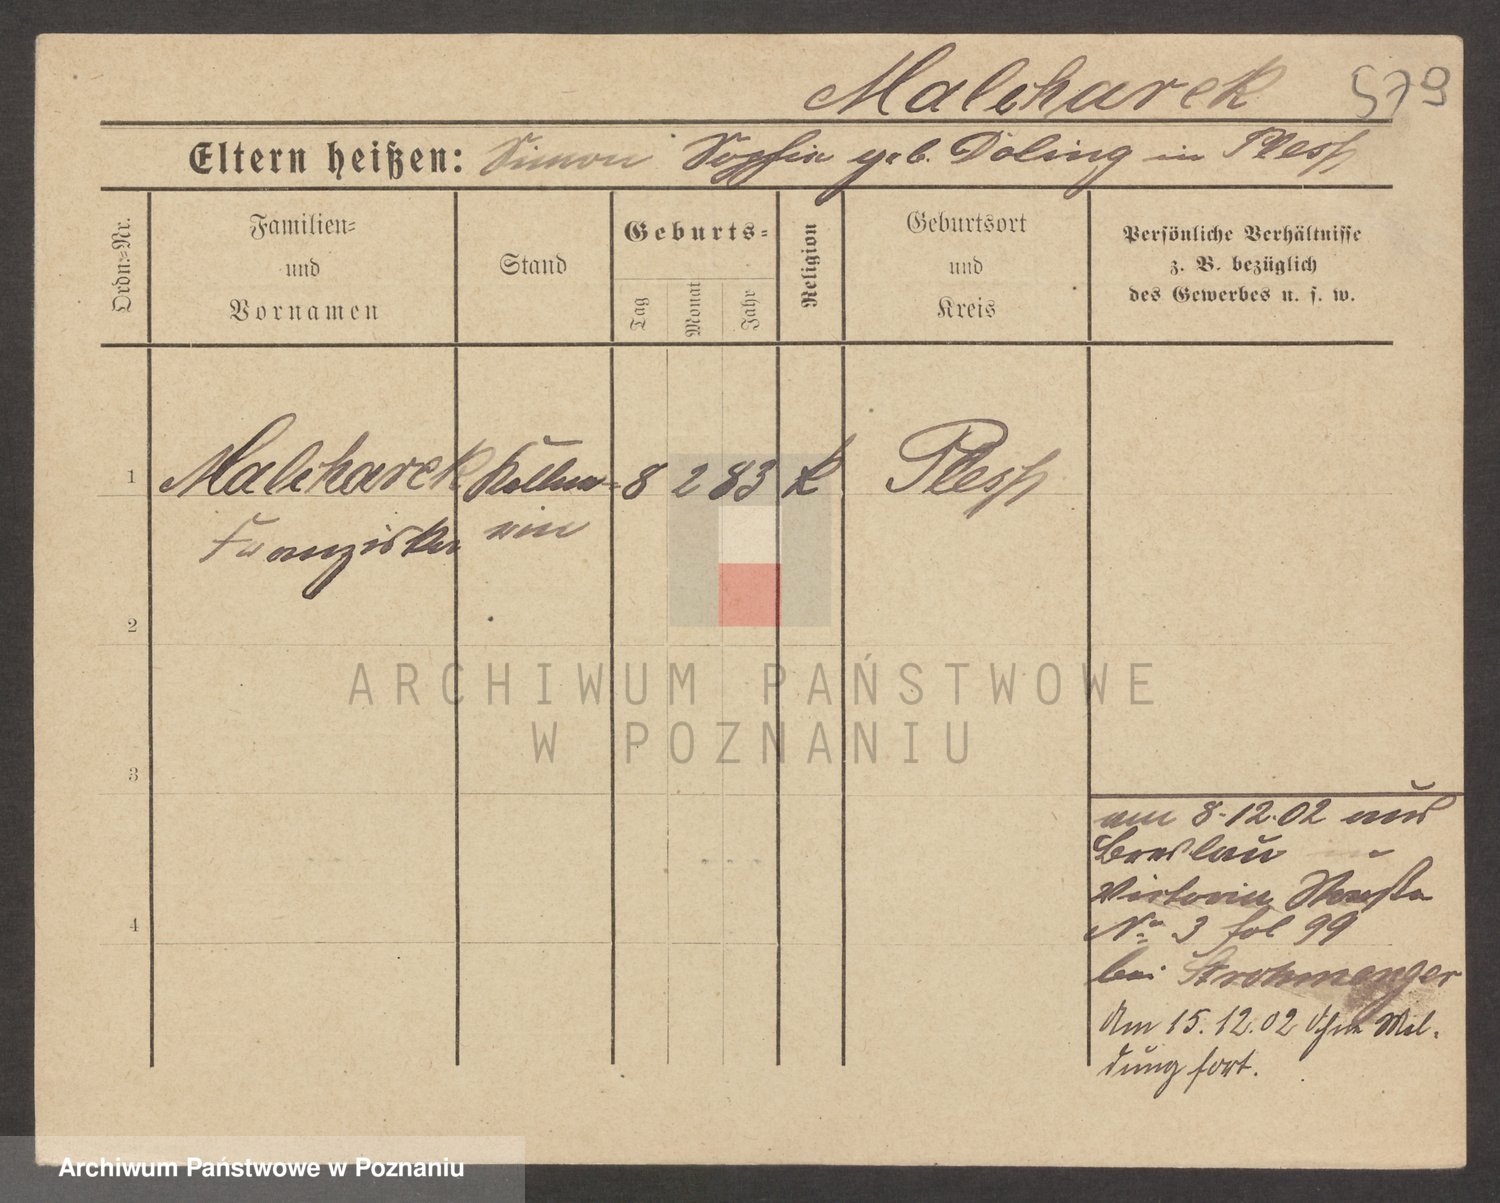 Malcharek 579
Eltern heißen: Simon Sophie geb. Doling in Pless
Ordn.-Nr.
Familien-
und
Vornamen
Stand
Geburts-
Tag
Monat
Jahr
Religion
Geburtsort
und
Kreis
Persönliche Verhältnisse
z. B. bezüglich
des Gewerbes u. s. w.
1 Malcharek Kellne- 8 2 83 K Pless
Franziska rin
2
3
4
am 8.12.02 aus
Breslau
Victoria
No 3 fol 99
bei Strohmenger
Am 15.12.02 ohne Mel-
dung fort.
ARCHIWUM PAŃSTWOWE
W POZNANIU
Archiwum Państwowe w Poznaniu